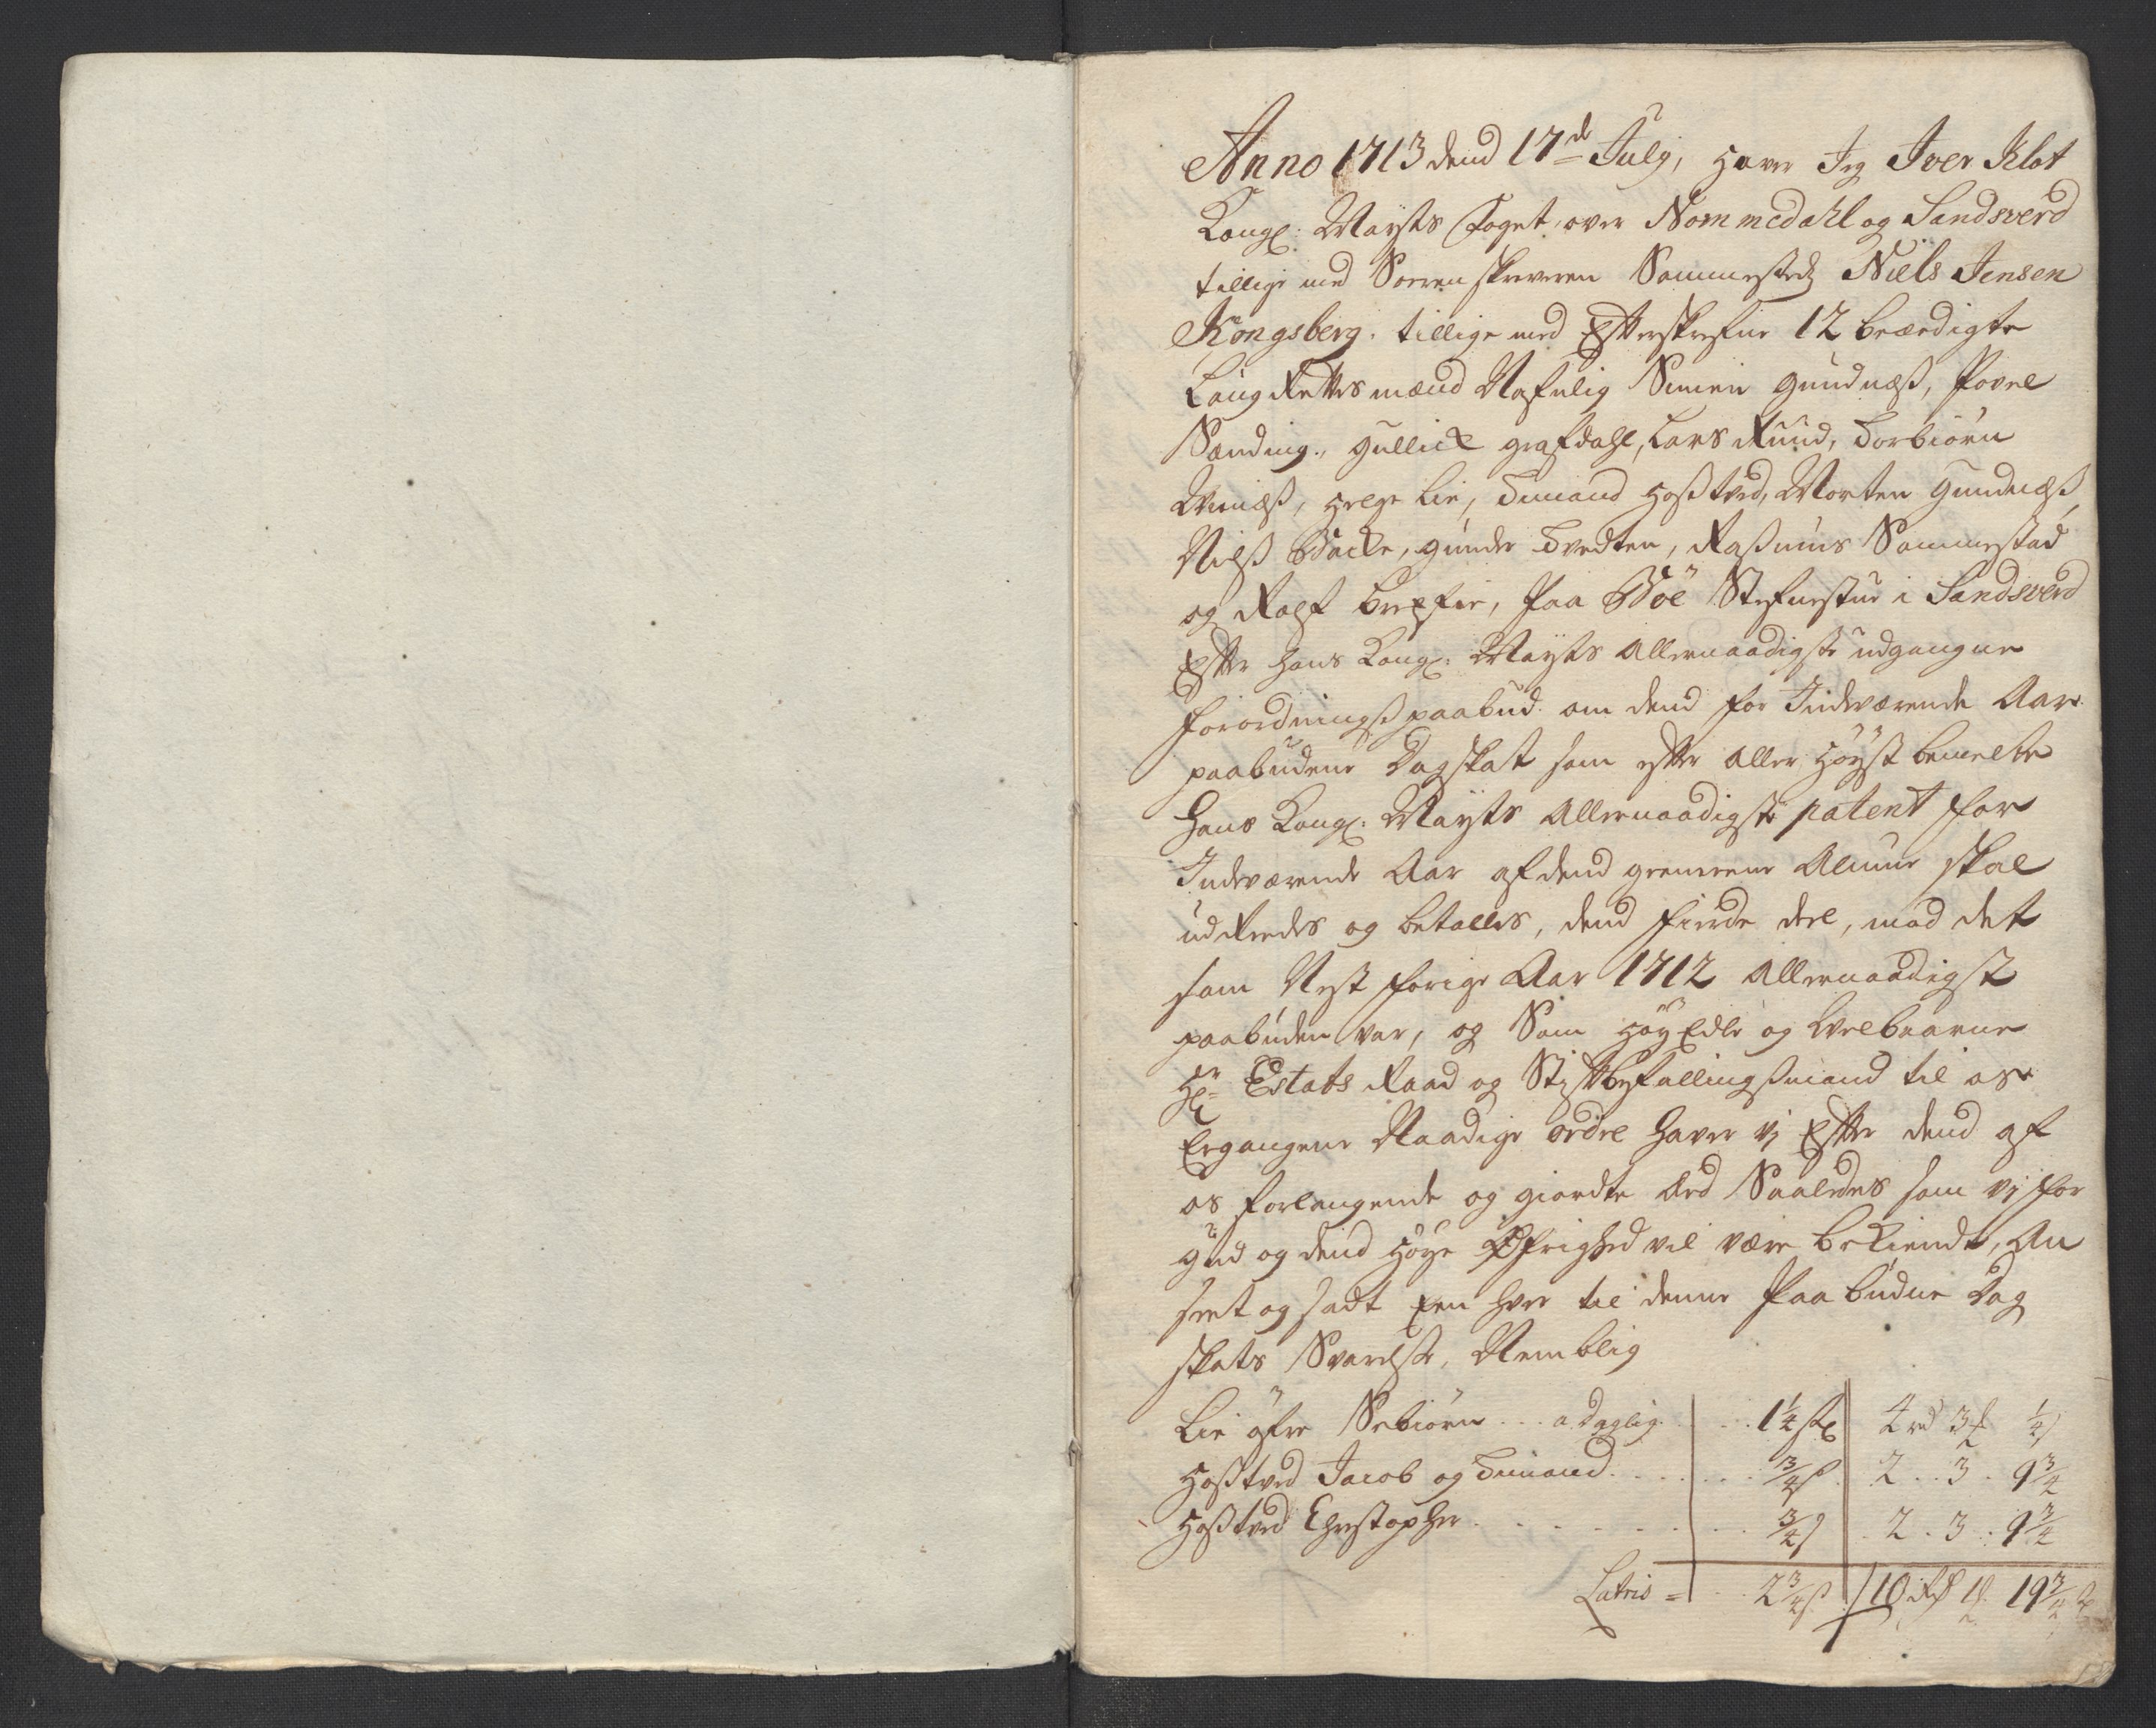 Anno 1713 dend 17de Julij, Haver Jeg Iver Klot
Kongl: Mayts Foget over Nommedahl og Sandsverd
tillige med Sorenskriveren Sammesteds Niels Jensen
Kongsberg. tillige med Efterskrefne 12 beædigte
Laug Rettes mænd Nafnlig Simen Gundnæß, Povel
Sanding., Gullick grafdahl, Lars Ruud, Torbiørn
Winæß, Helge Lie, Simand Hoßtved, Morten Gundnæß,
Nilß Backe, Gunder Tvedten, Raßmus Sammestad
og Rolf, Paa Böe Stefnestue i Sandsverd
Efter Hans Kongl: Mayts Allernaadigste udgangne
forordningß paabud om dend for Indværende Aar
paabudene Dagskat som efter aller Høyst bemelte
Hans Kongl: Mayts Allernaadigste patent for
Indværende Aar af dend gemeene Almue skal
udReedes og betalles, dend fierde deel, mod det
som Nest forige Aar 1712 Allernaadigst
paabuden var, og Som HøyEdle og Velbaarne
Hr: Estats Raad og Stiftbefallingßmand til os
Ergangene Naadige ordre Haver vj Efter dend af
os forlangende og giordte Eed Saaledes som vj for
Gud og dend Høye Øfrighed vil være bekiendt, An
seet og sadt Een hver til denne Paabudne Dag
skats Svarelse, Nemblig
Lie øfre Sebiørn ... a Daglig ... 1 1/4 sk 4 rd 3 1/4
Hoßtved Jacob og Simand ...... 3/4 s 2 . 3 . 9 3/4
Hoßtved Christopher ...... 3/4 s 2 . 3 . 9 3/4
Lateris = 2 3/4 s 10 Rd 1 19 3/4